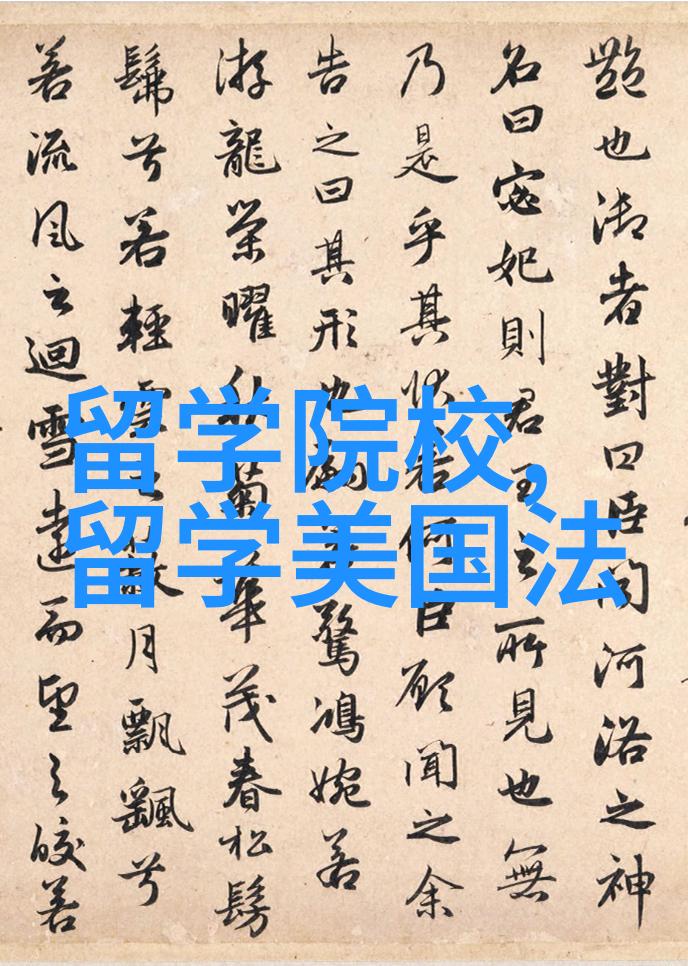 艷也御者對曰臣聞河洛之神
名曰宓妃則君王之所見也無
乃是乎其狀若何臣願聞之余
告之曰其形也翩若驚鴻婉若
游龍榮曜秋菊華茂春松髣
髴兮若輕雲之蔽月飄颻兮
若流風之迴雪遠而望之皎若
留学院校,
留学美国法